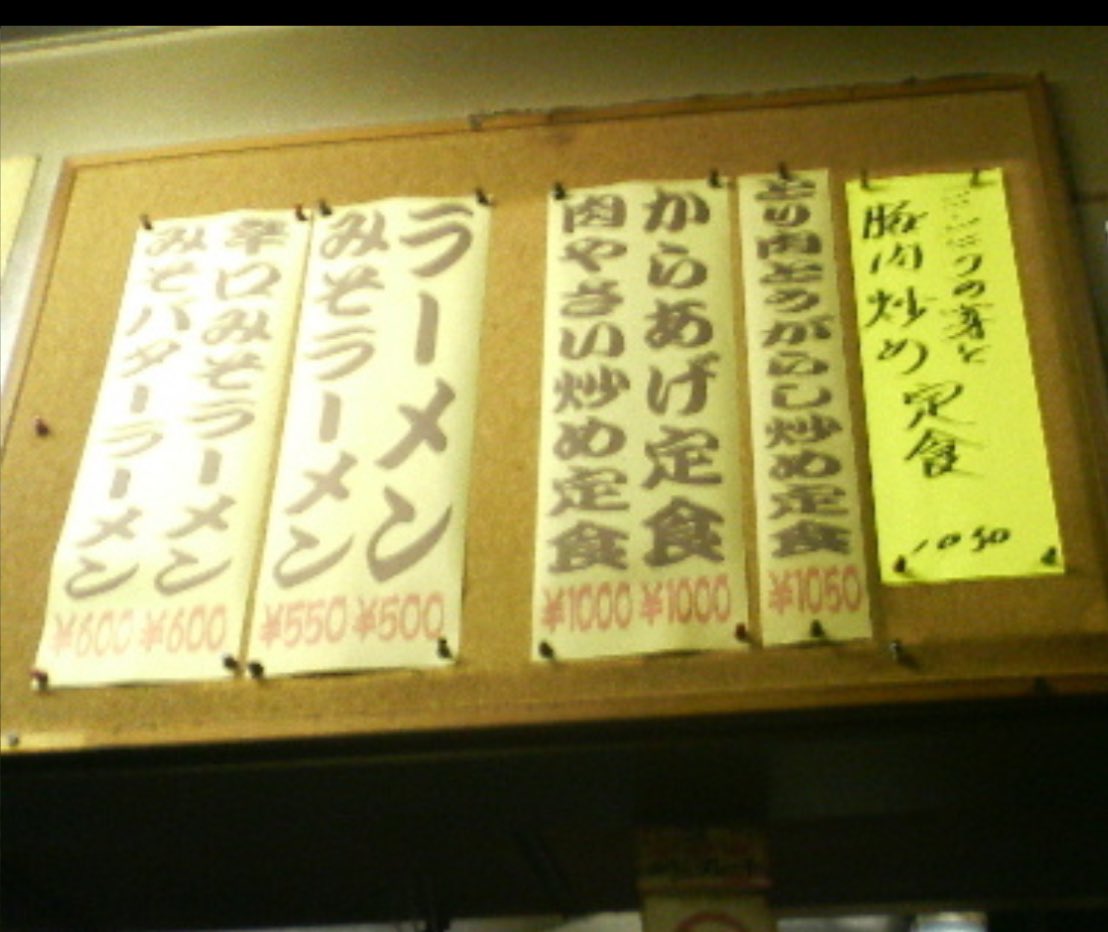 ニンニクの芽と
豚肉炒め定食
1050
とり肉とうがらし炒め定食
¥1050
からあげ定食
¥1000
肉やさい炒め定食
¥1000
ラーメン
¥500
みそラーメン
¥550
辛口みそラーメン
¥600
みそバターラーメン
¥600